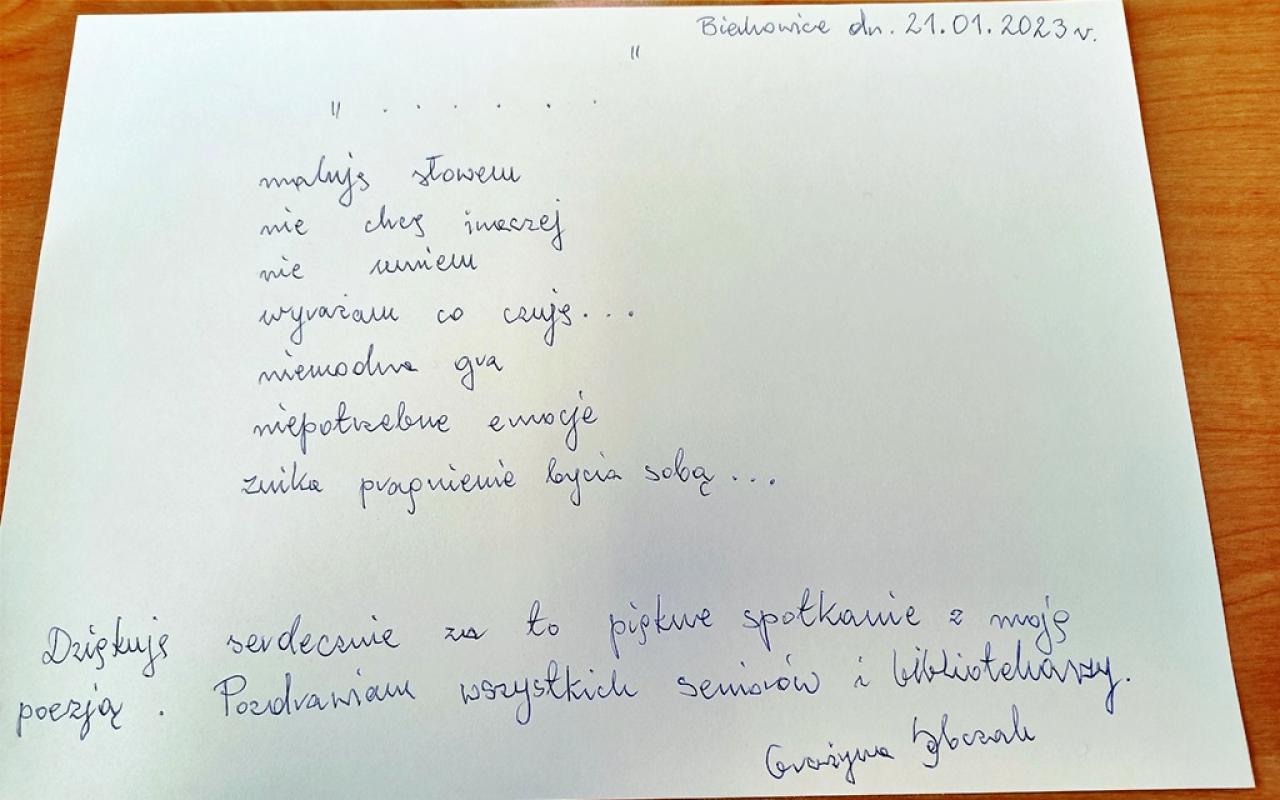 Biechowice dn. 21.01.2023 r.
" . . . . . . "
maluję słowem
nie chcę inaczej
nie umiem
wyrażam co czuję...
niemodna gra
niepotrzebne emocje
znika pragnienie bycia sobą...
Dziękuję serdecznie za to piękne spotkanie z moją
poezją. Pozdrawiam wszystkich seniorów i bibliotekarzy.
Grażyna